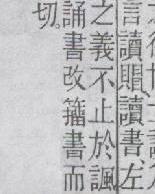 言讀賵讀書左
之義不止於諷
誦書改籀書而
切